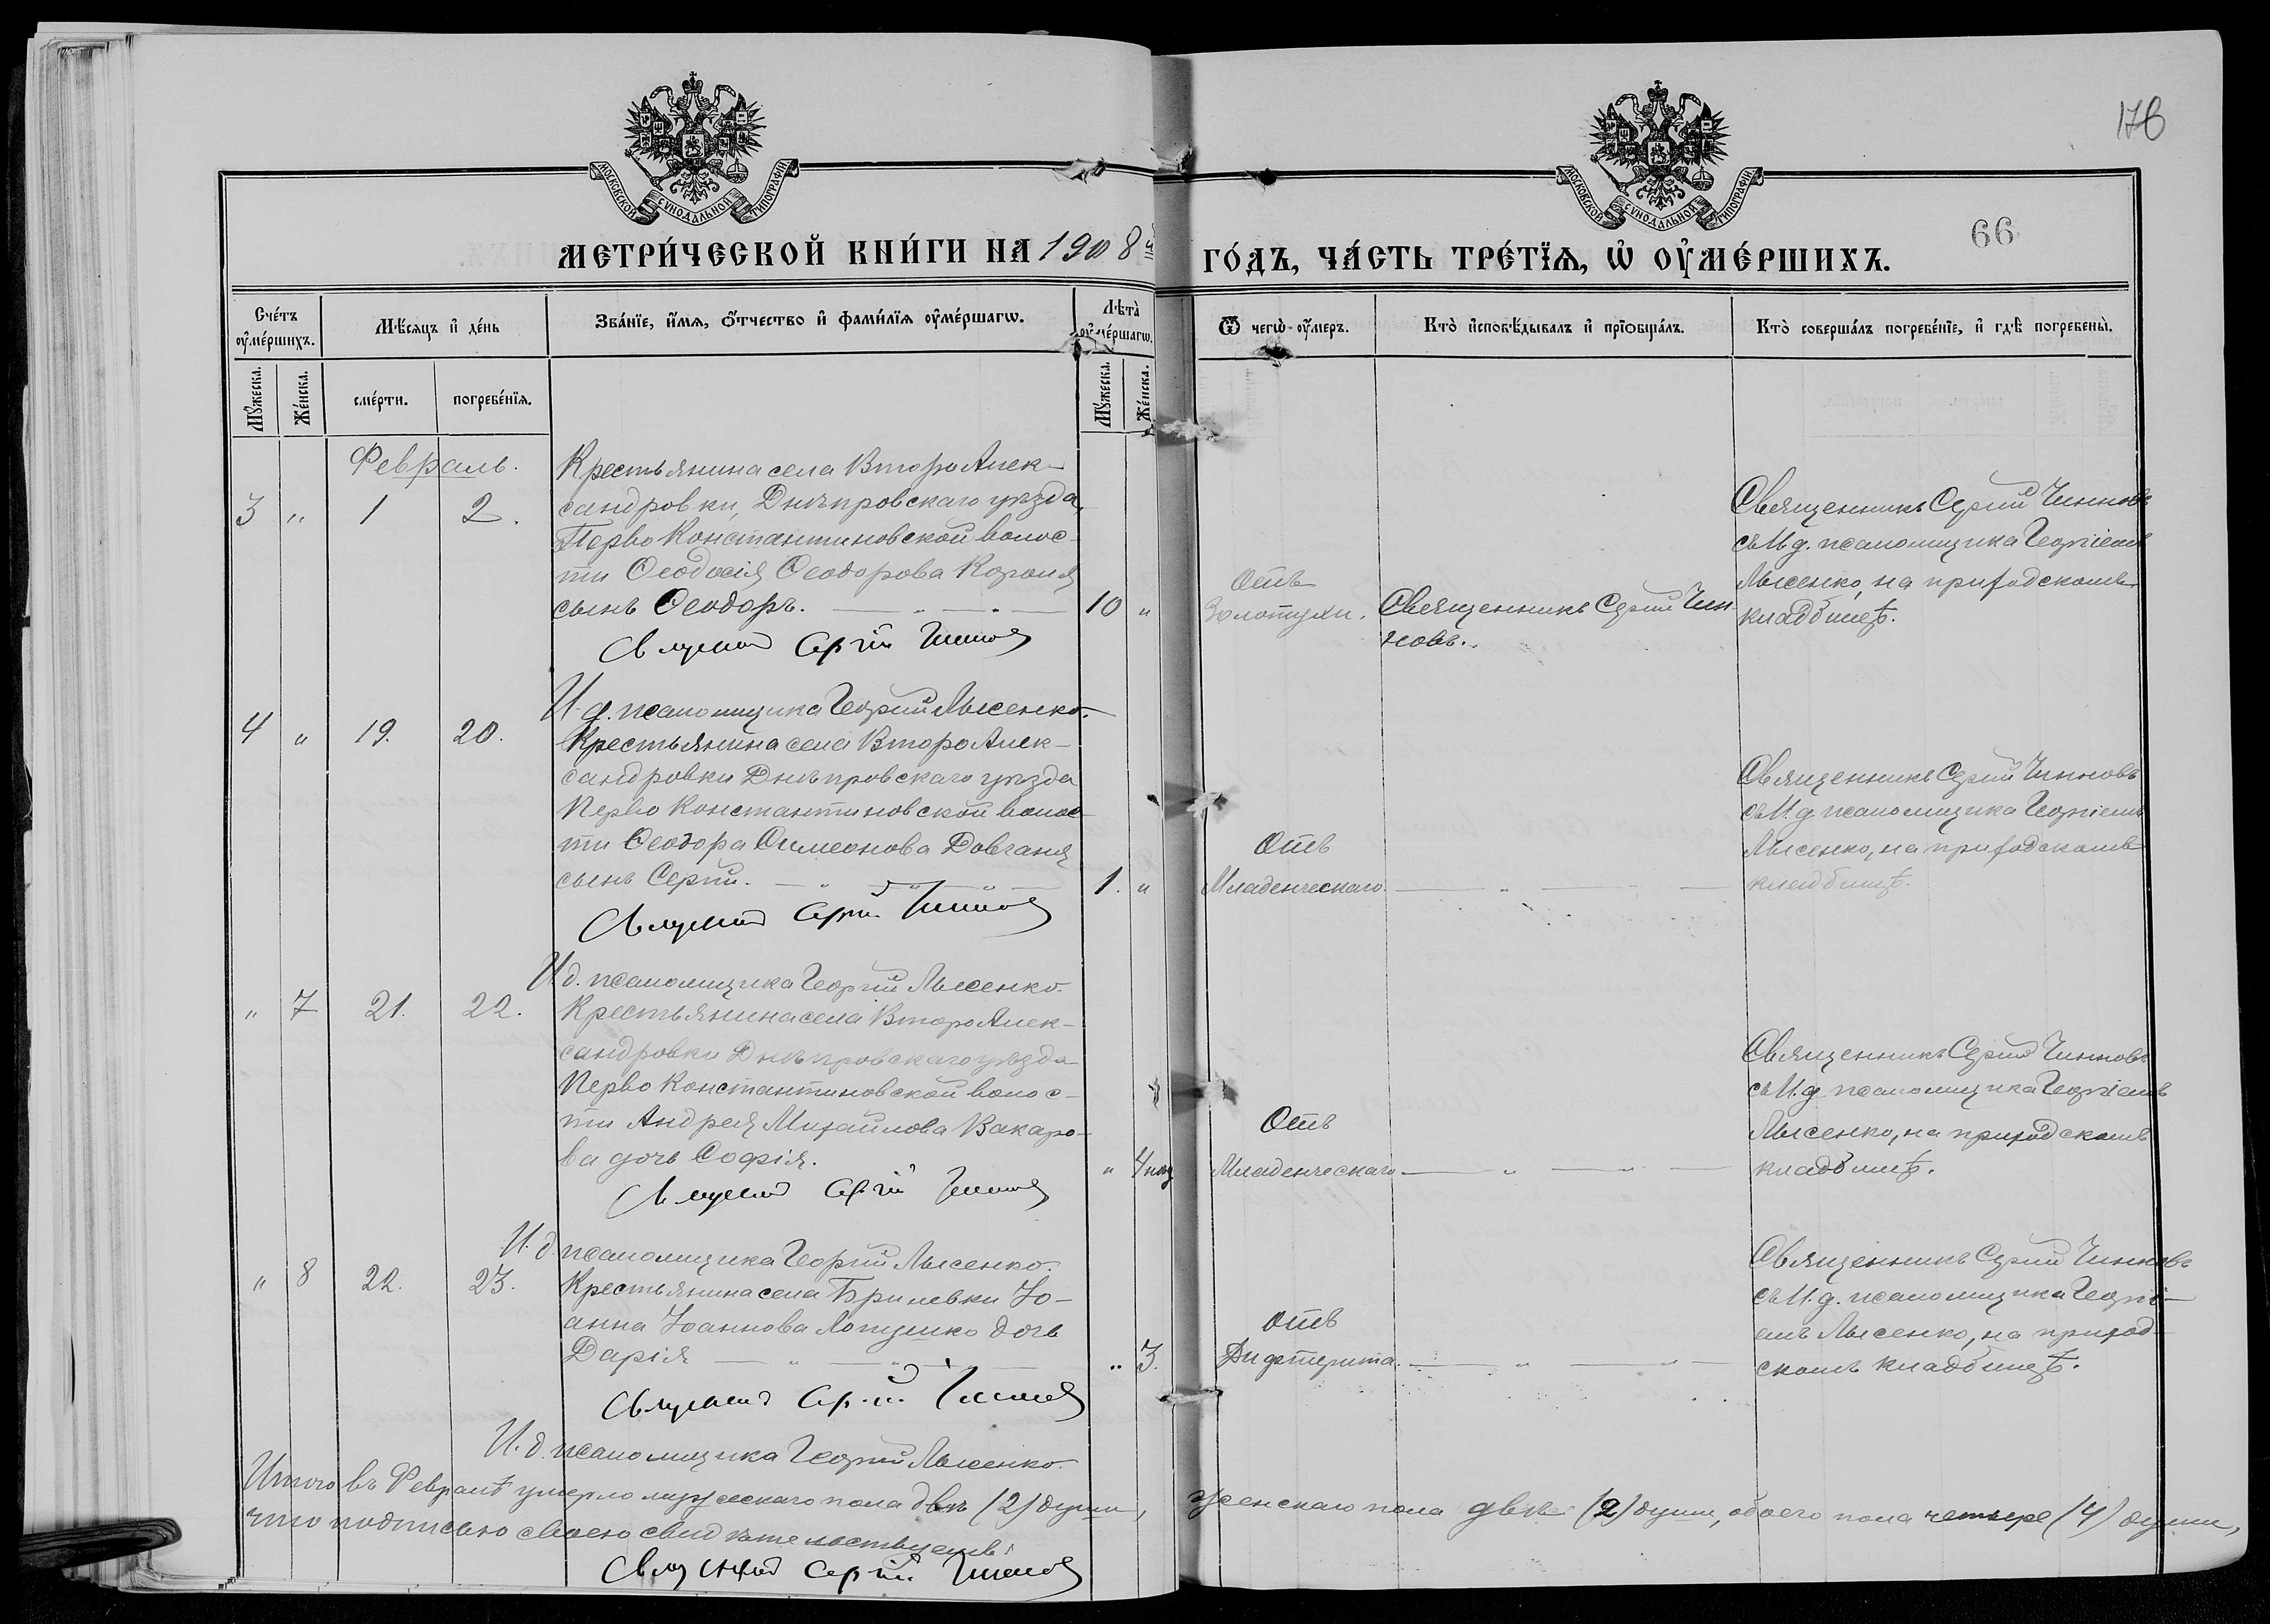 176
МОСКОВСКОЙ СѴНОДАЛЬНОЙ ТИПОГРАФІИ
МОСКОВСКОЙ СѴНОДАЛЬНОЙ ТИПОГРАФІИ
66
МЕТРИ́ЧЕСКОЙ КНИ́ГИ НА 1908й ГО́ДЪ, ЧА́СТЬ ТРЕ́ТЇѦ, Ѡ҆ ОУ҆МЕ́РШИХЪ.
Сче́тъ оу҆ме́ршихъ.
Мꙋ́жеска.
Же́нска.
Мѣ́сѧцъ и҆ де́нь
сме́рти.
погребе́нїѧ.
Зва́нїе, и҆́мѧ, ѻ҆́тчество и҆ фами́лїѧ оу҆ме́ршагѡ.
Лѣ̑та оу҆ме́ршагѡ.
Мꙋ́жеска.
Же́нска.
Ѿ чегѡ̀ оу҆́меръ.
Кто̀ и҆сповѣ́дывалъ и҆ прїѡбща́лъ.
Кто̀ соверша́лъ погребе́нїе, и҆ гдѣ̀ погребены̀.
Февраль.
3 " 1 2.
Крестьянина села Второ Алек-
сандровки, Днѣпровскаго уѣзда,
Перво Константиновской волос-
ти Ѳеодосія Ѳеодорова Короля
сынъ Ѳеодоръ.
10 "
Отъ
Золотухи.
Священникъ Сергій Чин
новъ.
Священникъ Сергій Чинновъ
съ И. д. псаломщика Георгіемъ
Лысенко, на приходскомъ
кладбищѣ.
Священникъ Сергій Чинновъ
И. д. псаломщика Георгій Лысенко.
4 " 19. 20.
Крестьянина села Второ Алек-
сандровки Днѣпровскаго уѣзда
Перво Константиновской волос-
ти Ѳеодора Симеонова Довганя
сынъ Сергій.
1. "
Отъ
Младенческаго
Священникъ Сергій Чинновъ
съ И. д. псаломщика Георгіемъ
Лысенко, на приходскомъ
кладбищѣ.
Священникъ Сергій Чинновъ
И. д. псаломщика Георгій Лысенко.
" 7 21. 22.
Крестьянина села Второ Алек-
сандровки Днѣпровскаго уѣзда
Перво Константиновской волос-
ти Андрея Михайлова Вакаро-
ва дочь Софія.
" 4
Отъ
Младенческаго
Священникъ Сергій Чинновъ
съ И. д. псаломщика Георгіемъ
Лысенко, на приходскомъ
кладбищѣ.
Священникъ Сергій Чинновъ
И. д. псаломщика Георгій Лысенко.
" 8 22. 23.
Крестьянина села Брилевки Іо-
анна Іоаннова Лопушко дочь
Дарія
" 3.
Отъ
Дифтерита.
Священникъ Сергій Чинновъ
съ И. д. псаломщика Георгі-
емъ Лысенко, на приход-
скомъ кладбищѣ.
Священникъ Сергій Чинновъ
И. д. псаломщика Георгій Лысенко.
Итого въ Февралѣ умерло мужескаго пола двѣ (2) души, женскаго пола двѣ (2) души, обоего пола четыре (4) души,
что подписью своею свидѣтельствуемъ:
Священникъ Сергій Чинновъ